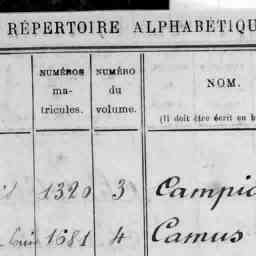 RÉPERTOIRE ALPHABÉTIQU
NUMÉROS ma- tricules.
NUMÉRO du volume.
NOM.
(Il doit être écrit en b
1320 3 Campi
1681 4 Camus